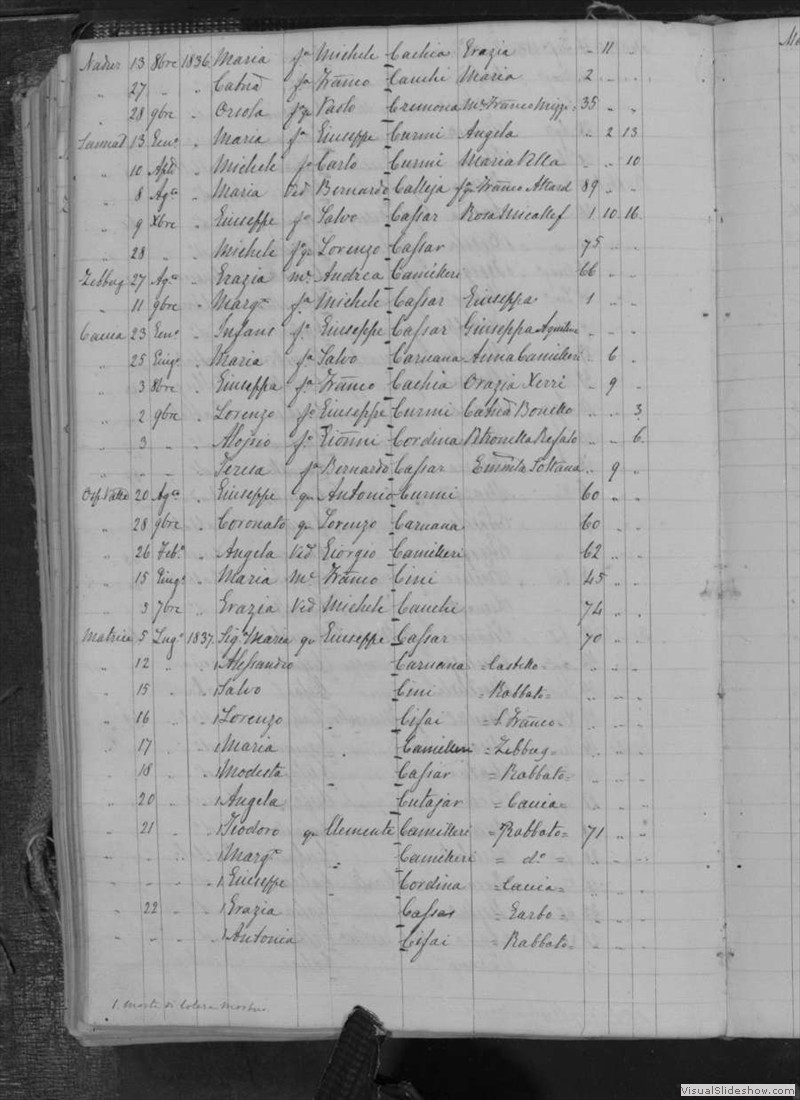 Nadur 13 8bre 1836 Maria fa Michele Cachia Grazia " 11 "
" 27 " " Catna fa Franco Cauchi Maria 2 " "
" 28 9bre " Orsola fqm Paolo Cremona Me Franco Mizzi 35 " "
Sannat 13 Geno " Maria fa Giuseppe Curmi Angela " 2 13
" 10 Aple " Michele fo Carlo Curmi Maria Vella " " 10
" 8 Agto " Maria Ved Bernardo Calleja fqm Franco Attard 89 " "
" 9 Xbre " Giuseppe fo Salvo Cassar Rosa Micallef 1 10 16
" 28 " " Michele fo qm Lorenzo Cassar 75 " "
Zebbug 27 Agto " Grazia me Andrea Camilleri 66 " "
" 11 9bre " Marga fa Michele Cassar Giuseppa 1 " "
Caccia 23 Geno " Infans fo Giuseppe Cassar Giuseppa Aquilina " " "
" 25 Giugo " Maria fa Salvo Caruana Anna Camilleri " 6 "
" 3 8bre " Giuseppa fa Franco Cachia Orazia Xerri " 9 "
" 2 9bre " Lorenzo fo Giuseppe Curmi Catna Bonello " " 3
" 3 " " Aloisio fo Gionni Cordina Petronella Refalo " " 6
" " " " Teresa fa Bernardo Cassar Sultana " 9 "
20 Agto " Giuseppe qm Antonio Curmi 60 " "
" 28 9bre " Coronato qm Lorenzo Caruana 60 " "
" 26 Febo " Angela Ved Giorgio Camilleri 62 " "
" 15 Giugo " Maria Me Franco Cini 45 " "
" 3 7bre " Grazia Ved Michele Cauchi 74 " "
Matrice 5 Lugo 1837 Siga Maria qm Giuseppe Cassar 70 " "
" 12 " " 1 Alessandro Caruana = Castello " " "
" 15 " " 1 Salvo Cini = Rabbato = " " "
" 16 " " 1 Lorenzo " Cifai = S. Franco = " " "
" 17 " " 1 Maria " Camilleri = Zebbug = " " "
" 18 " " 1 Modesta " Cassar = Rabbato = " " "
" 20 " " 1 Angela " Cutajar = Caccia = " " "
" 21 " " 1 Teodoro qm Clemente Camilleri = Rabbato = 71 " "
" " " " 1 Marga " Camilleri = do = " " "
" " " " 1 Giuseppe " Cordina = Caccia = " " "
" 22 " " 1 Grazia " Cassar = Garbo = " " "
" " " " 1 Antonia " Cifai = Rabbato = " " "
1. morti di Colera Morbus
VisualSlideshow.com